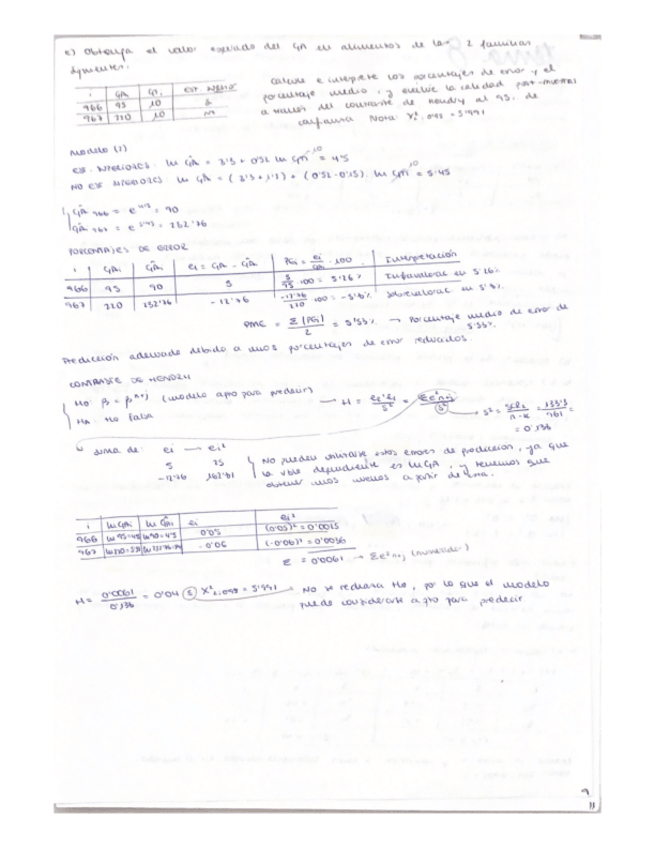 c) Obtenga el valor esperado del GA en alimentos de las 2 familias
siguientes.
i GAi GTi EST. INFERIO
966 95 10 Sí
967 220 10 No
Calcule e interprete los porcentajes de error y el
porcentaje medio, y evalúe la calidad post-muestral
a través del contraste de Hendry al 95% de
confianza Nota: X² 0'95 = 5'991
Modelo (2)
EST. INFERIORES: ln GA = 3'3 + 0'52 ln GTi = 4'5
NO EST INFERIORES ln GA = ( ) + (0'52 - 0'15). ln GTi = 5'45
GA 966 = = 90
GA 967 = = 232'76
PORCENTAJES DE ERROR
i GAi GAi ei = GA - GA PGi = ei/GAi · 100 Interpretación
966 95 90 5 5/95 · 100 = 5'26% Infravalorac en 5'26%
967 220 232'76 -12'76 -12'76/220 · 100 = -5'8% Sobrevalorac en 5'8%
PME = Σ|PGi|/2 = 5'53% → Porcentaje medio de error de
5'53%.
Predicción adecuada debido a unos porcentajes de error reducidos.
CONTRASTE DE HENDRY
Ho: β = β^n+j (modelo apto para predecir) → H = = Σe²n+j/S² → S² = SCR/n-k = =
HA: Ho falsa = 0'136
suma de: ei → ei²
5 25
-12'76 162'81
No pueden utilizarse estos errores de predicción, ya que
la vble dependiente es ln GA, y tenemos que
obtener unos nuevos a partir de esta.
i ln GAi ln GAi ei ei²
966 ln 95 = ln 90 = 4'5 0'05 (0'05)² = 0'0025
967 -0'06 (-0'06)² = 0'0036
Σ = 0'0061 → Σe²n+j (numerador)
H = 0'0061/0'136 = 0'04 ≤ X² = 5'991 → No se rechaza Ho, por lo que el modelo
puede considerarse apto para predecir.